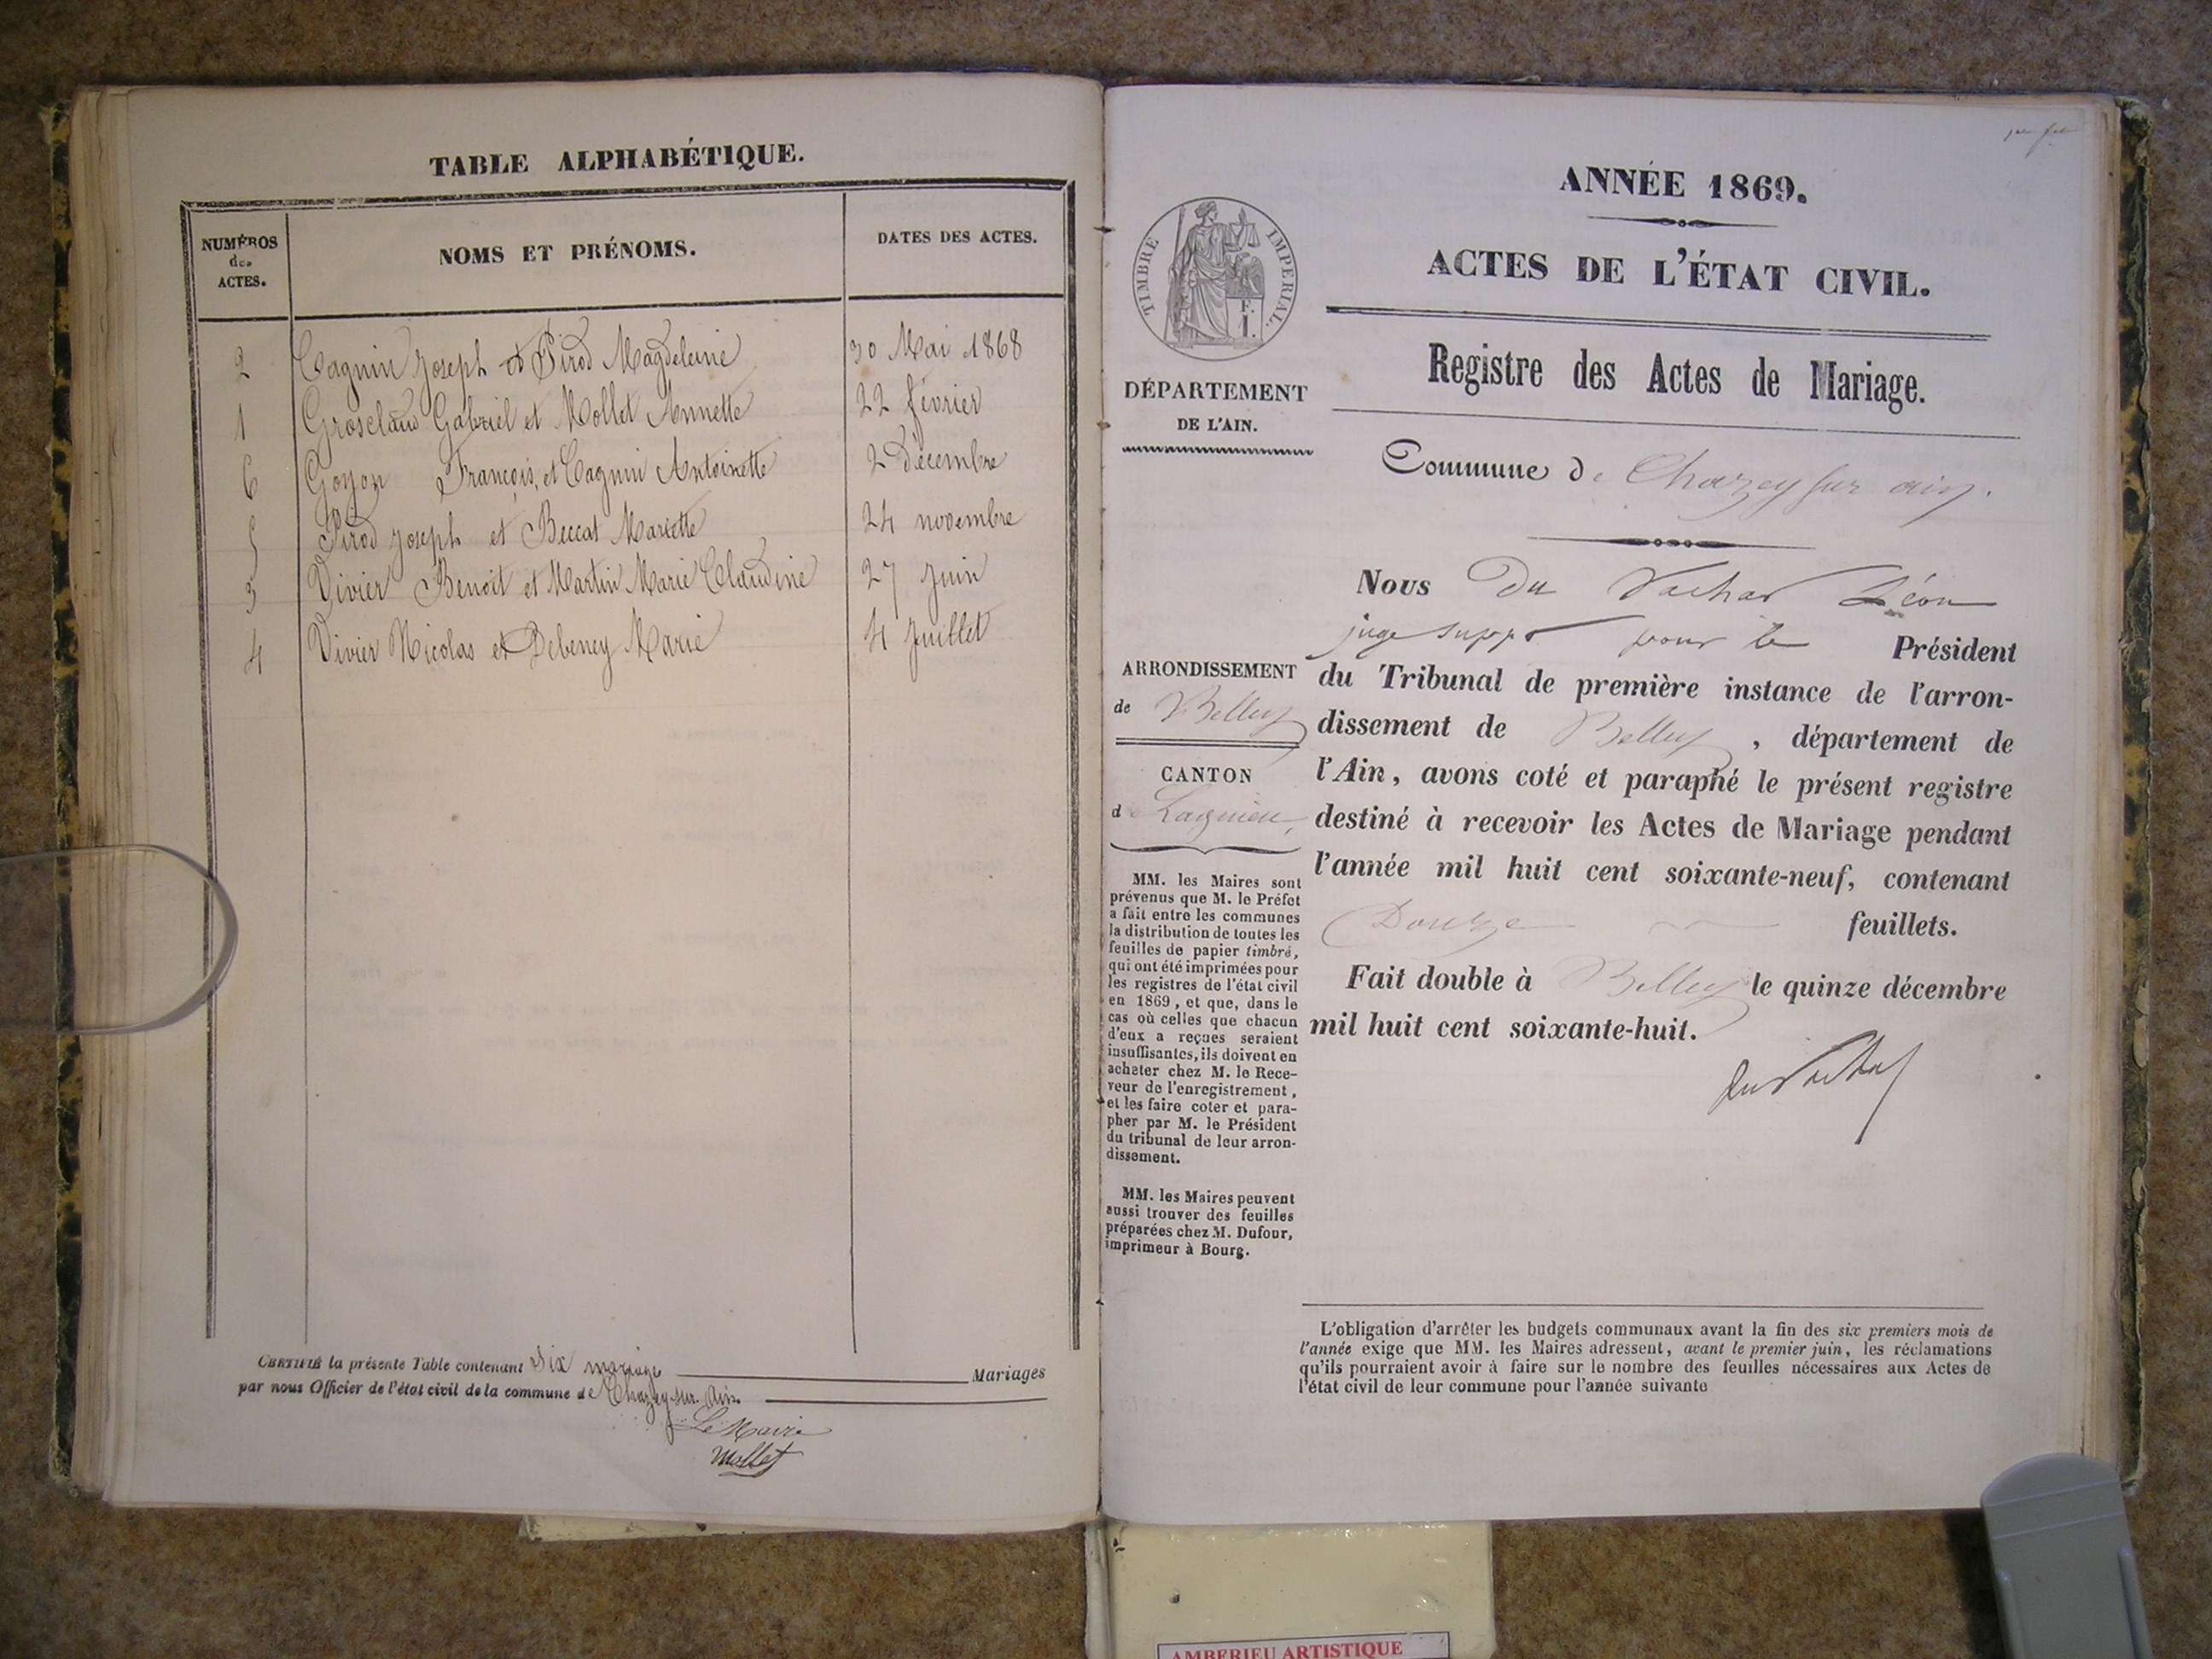 TABLE ALPHABÉTIQUE.
NUMÉROS des ACTES.
NOMS ET PRÉNOMS.
DATES DES ACTES.
2 Cagnin Joseph et Pirod Magdeleine 30 Mai 1868
1 Grosclaud Gabriel et Mollet Annette 22 février
6 Goyon François, et Cagnin Antoinette 2 Décembre
5 Pirod Joseph et Beccat Mariette 24 novembre
3 Vivier Benoit et Martin Marie Claudine 27 Juin
4 Vivier Nicolas et Debeney Marie 4 Juillet
CERTIFIÉ la présente Table contenant Six mariage Mariages
par nous Officier de l'état civil de la commune de Chazey-sur-Ain.
Le Maire
Mollet
ANNÉE 1869.
ACTES DE L'ÉTAT CIVIL.
Registre des Actes de Mariage.
TIMBRE IMPERIAL.
F.
I.
DÉPARTEMENT
DE L'AIN.
Commune de Chazey sur ain.
ARRONDISSEMENT
de Belley
CANTON
de Lagnieu,
MM. les Maires sont
prévenus que M. le Préfet
a fait entre les communes
la distribution de toutes les
feuilles de papier timbré,
qui ont été imprimées pour
les registres de l'état civil
en 1869, et que, dans le
cas où celles que chacun
d'eux a reçues seraient
insuffisantes, ils doivent en
acheter chez M. le Rece-
veur de l'enregistrement,
et les faire coter et para-
pher par M. le Président
du tribunal de leur arron-
dissement.
MM. les Maires peuvent
aussi trouver des feuilles
préparées chez M. Dufour,
imprimeur à Bourg.
Nous Du Vachat Léon
juge suppt pour le Président
du Tribunal de première instance de l'arron-
dissement de Belley, département de
l'Ain, avons coté et paraphé le présent registre
destiné à recevoir les Actes de Mariage pendant
l'année mil huit cent soixante-neuf, contenant
Douze feuillets.
Fait double à Belley le quinze décembre
mil huit cent soixante-huit.
Du Vachat
L'obligation d'arrêter les budgets communaux avant la fin des six premiers mois de
l'année exige que MM. les Maires adressent, avant le premier juin, les réclamations
qu'ils pourraient avoir à faire sur le nombre des feuilles nécessaires aux Actes de
l'état civil de leur commune pour l'année suivante
AMBERIEU ARTISTIQUE